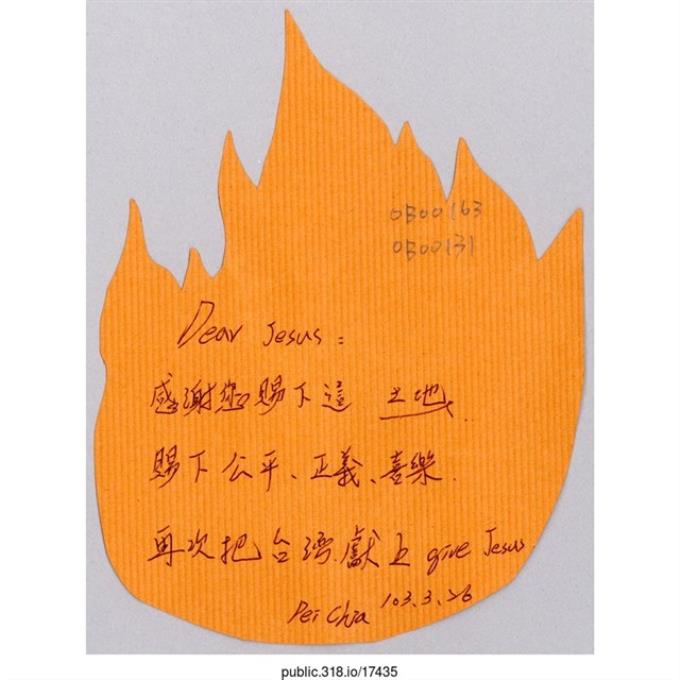 OB00163
OB00131
Dear Jesus:
感謝您賜下這 土地.
賜下公平、正義、喜樂.
再次把台灣獻上 give Jesus
Pei Chia 103.3.26
public.318.io/17435